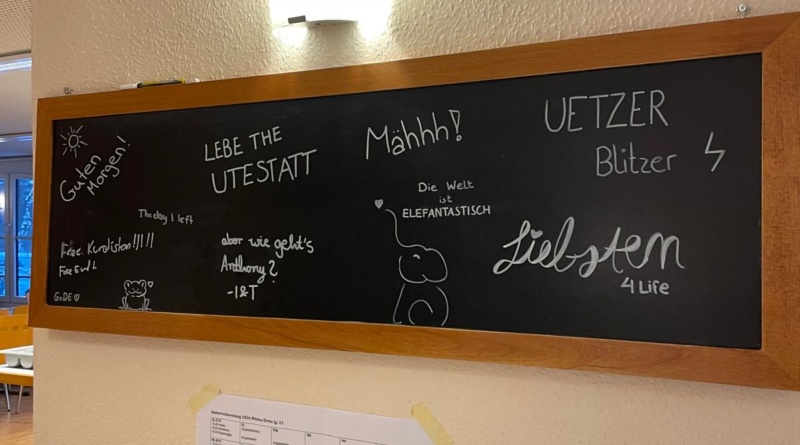 Guten
Morgen!
The day I left
Free Kurdistan!!!!!!
GoDE
LEBE THE
UTESTATT
aber wie geht's
Anthony?
-I&T
Mähhh!
Die Welt
ist
ELEFANTASTISCH
UETZER
Blitzer
Liebsten
4 Life